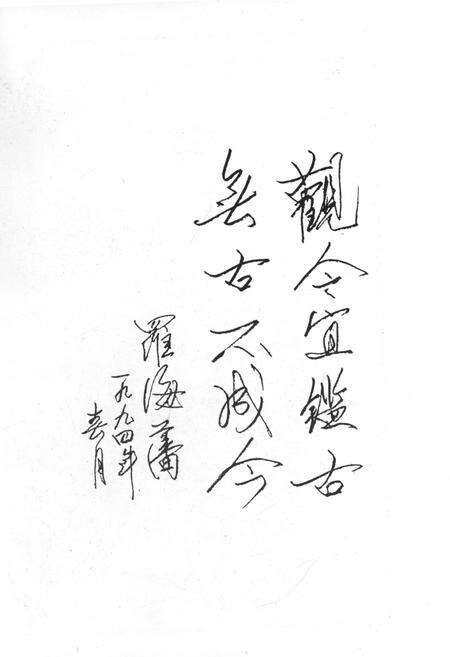 觀今宜鑑古
無古不成今
羅海藩
一九九四年
春月